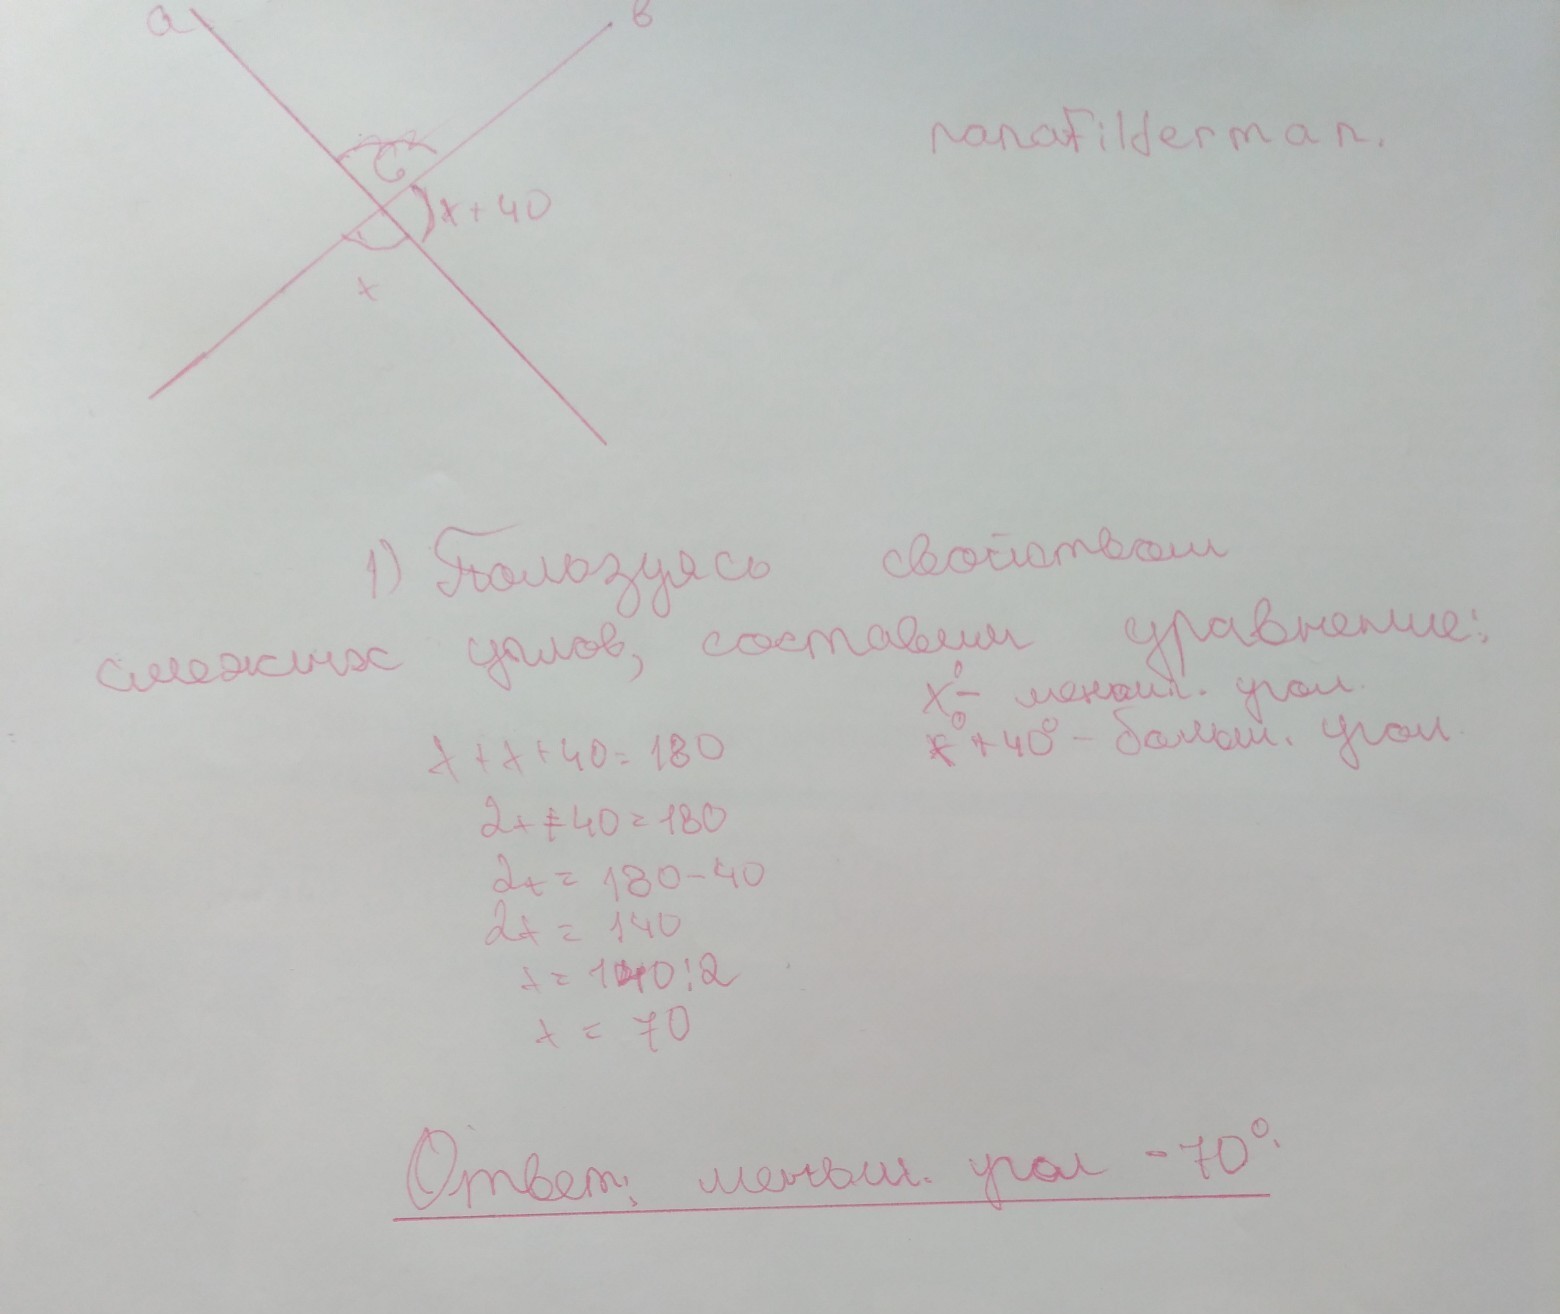 a
в
nanaFilderman.
x+40
x
1) Пользуясь свойством
смежных углов, составим уравнение:
x° - меньш. угол.
x°+40° - больш. угол.
x+x+40=180
2x+40=180
2x=180-40
2x=140
x=140:2
x=70
Ответ: меньш. угол - 70°.